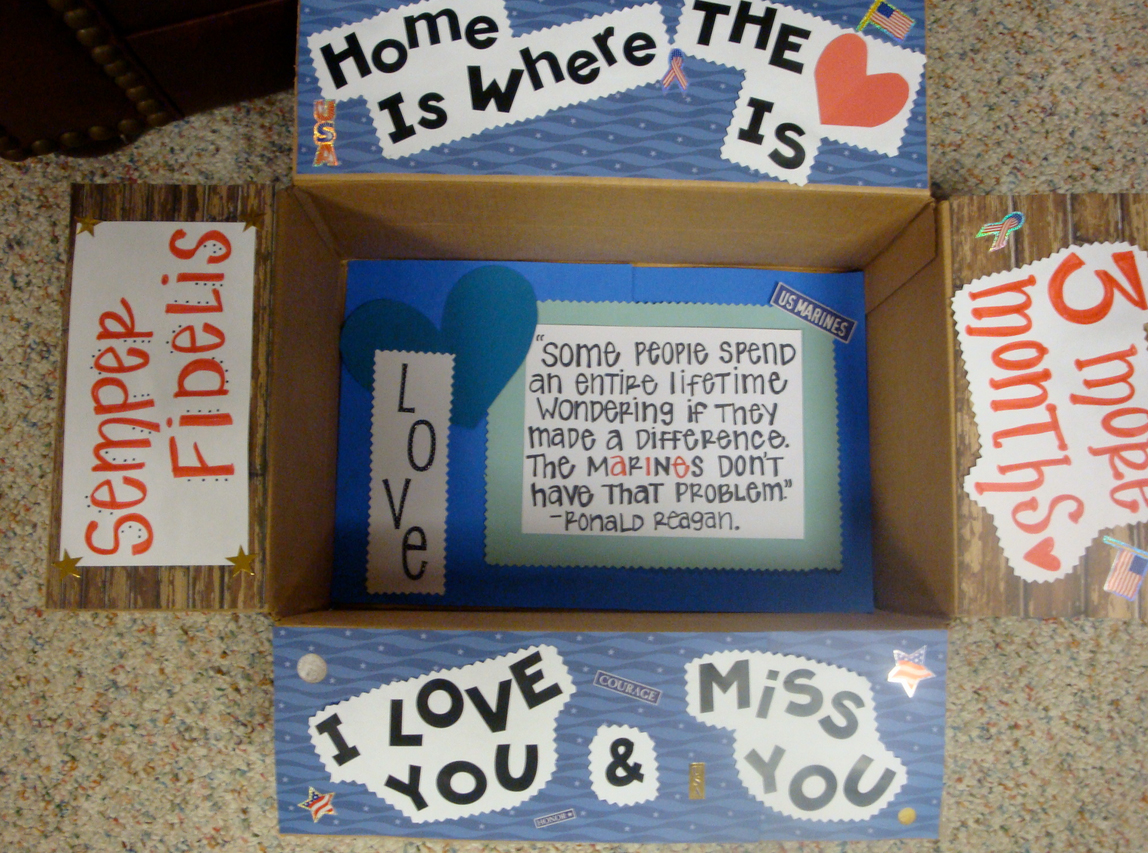 Home
Is Where
THE
IS
USA
Semper
Fidelis
LOVE
US MARINES
"Some people spend
an entire lifetime
wondering if they
made a difference.
The MARINES don't
have that problem."
-Ronald Reagan.
3 more
months
I LOVE
YOU
&
Miss
YOU
COURAGE
HONOR